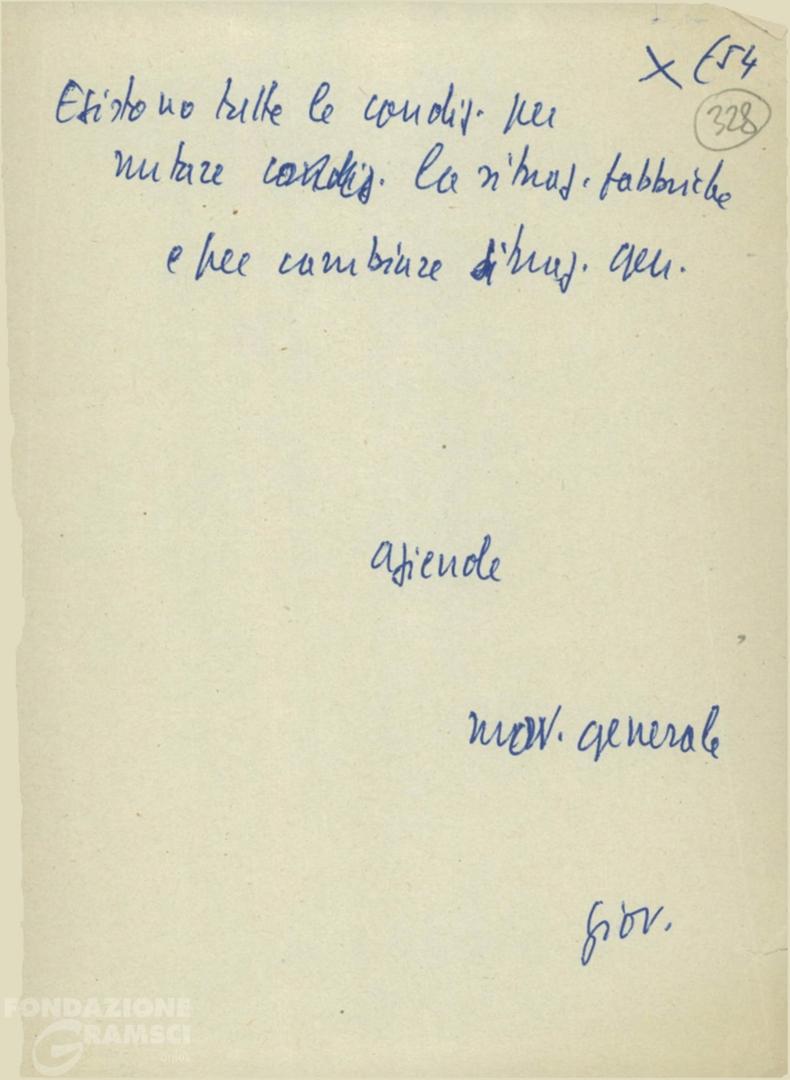 X E54
328
Esistono tutte le condiz. per
mutare condiz. la situaz. fabbriche
e per cambiare situaz. gen.
aziende
mov. generale
giov.
FONDAZIONE
GRAMSCI